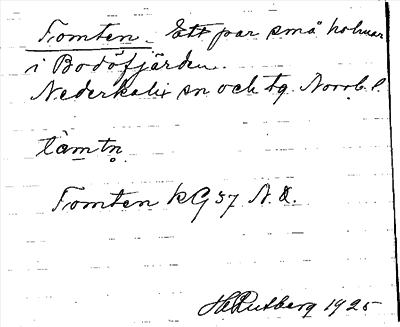 Tomten. Ett par små holmar
i Bodöfjärden.
Nederkalix sn och tg. Norrb. l.
tàmtn̥
Tomten kG 37 N.O.
Rutberg 1925